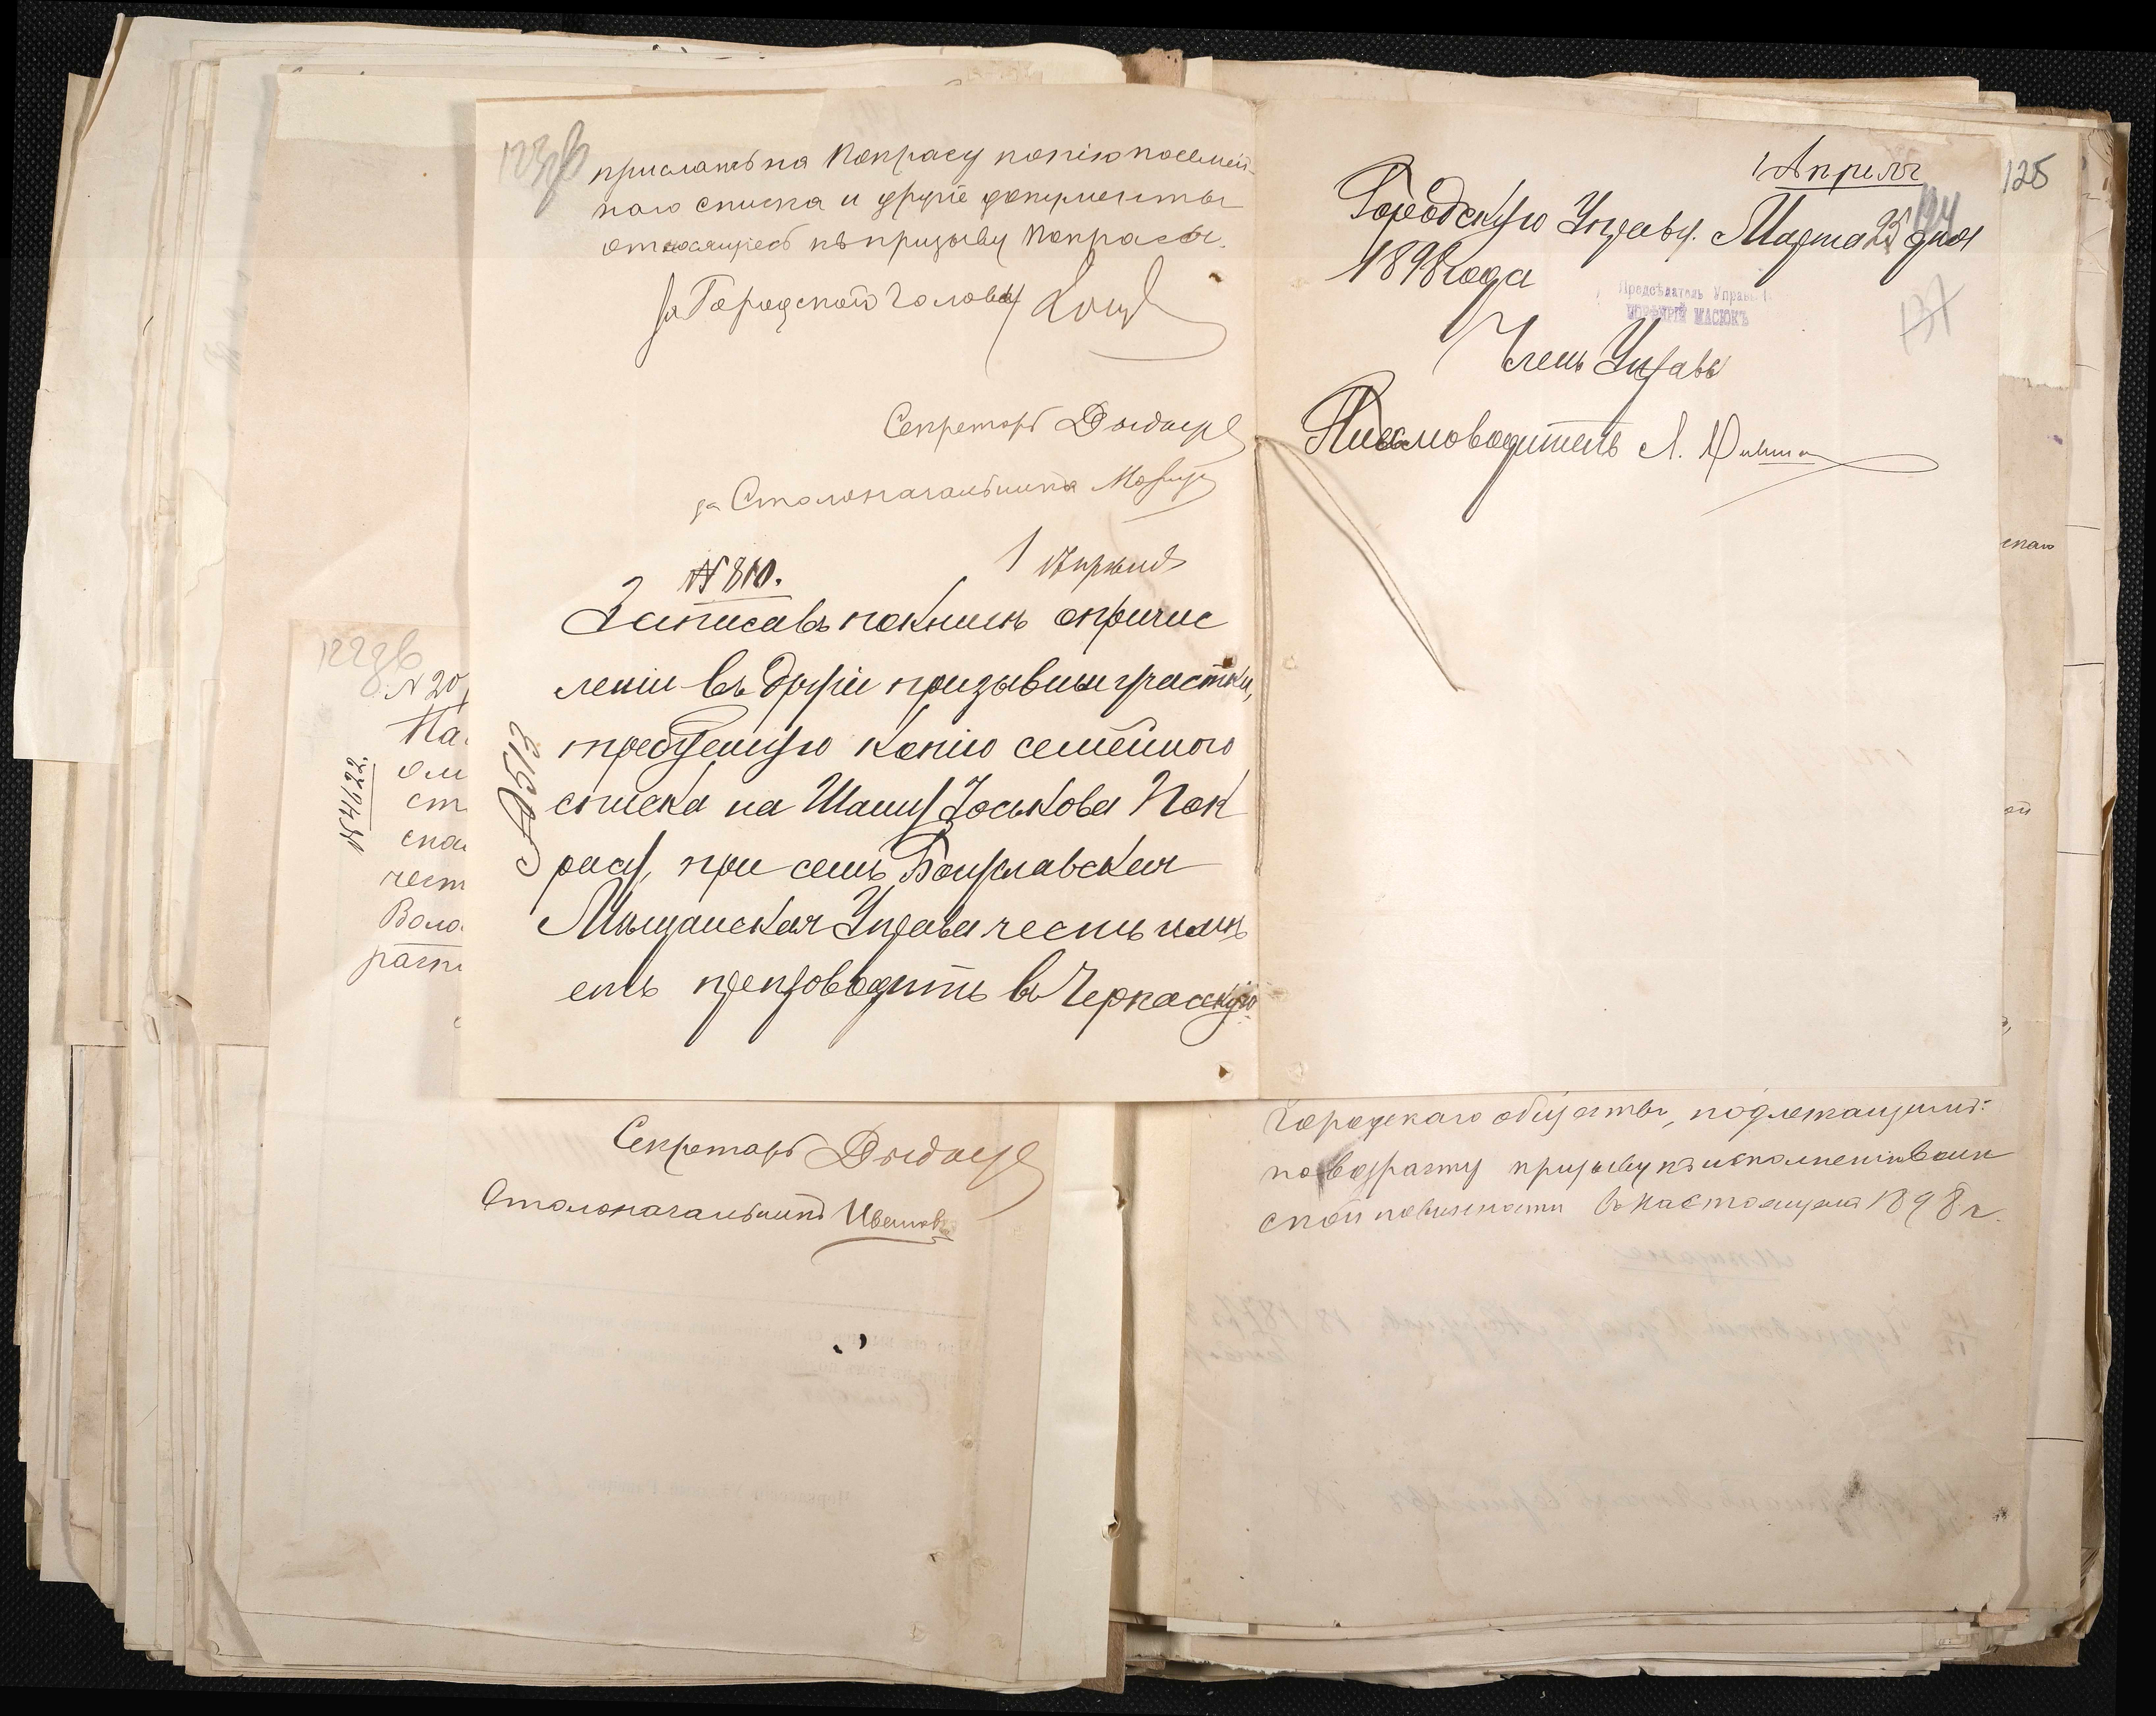 123 об
прислать на Покрасу копію посемей-
наго списка и другіе документы
относящіеся къ призыву Покрасы.
За Городской Голова
Секретарь
за Столоначальника
№ 810. 1 Апрѣля
Записавъ по книгѣ о причис
леніи въ другіе призывные участки,
требуемую копію семейнаго
списка на Шаію Іоськова Пок
расу, при семъ Богуславская
Мѣщанская Управа честь имѣ
етъ препроводить въ Черкасскую
№ 513
1 Апрѣля
Городскую Управу. Марта 23 дня
1898 года
125
124
137
Предсѣдатель Управы
ПОРФИРІЙ МАСЮКЪ
Членъ Управы
Письмоводитель Л.
122 об
№ 20
На
ом
ст
ска
чест
Воло
распо
Секретарь
Столоначальникъ
Городскаго общества, подлежащимъ
по возрасту призыву къ исполненію воин
ской повинности въ настоящемъ 1898 г.
скаго
ой